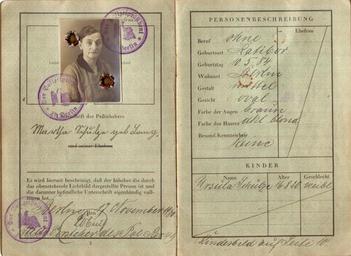 Unterschrift des Paßinhabers
Martha Schulze geb. Lang
und seiner Ehefrau
Es wird hiermit bescheinigt, daß der Inhaber die durch
das obenstehende Lichtbild dargestellte Person ist und
die darunter befindliche Unterschrift eigenhändig voll-
zogen hat.
Berlin, den November
PERSONENBESCHREIBUNG
Ehefrau
Beruf ohne
Geburtsort Ratibor
Geburtstag 5. 84
Wohnort Berlin
Gestalt mittel
Gesicht oval
Farbe der Augen braun
Farbe des Haares dkl. blond
Besond. Kennzeichen
Keine
KINDER
Name Alter Geschlecht
Ursula Schulze weibl.
Kinderbild auf Seite 10